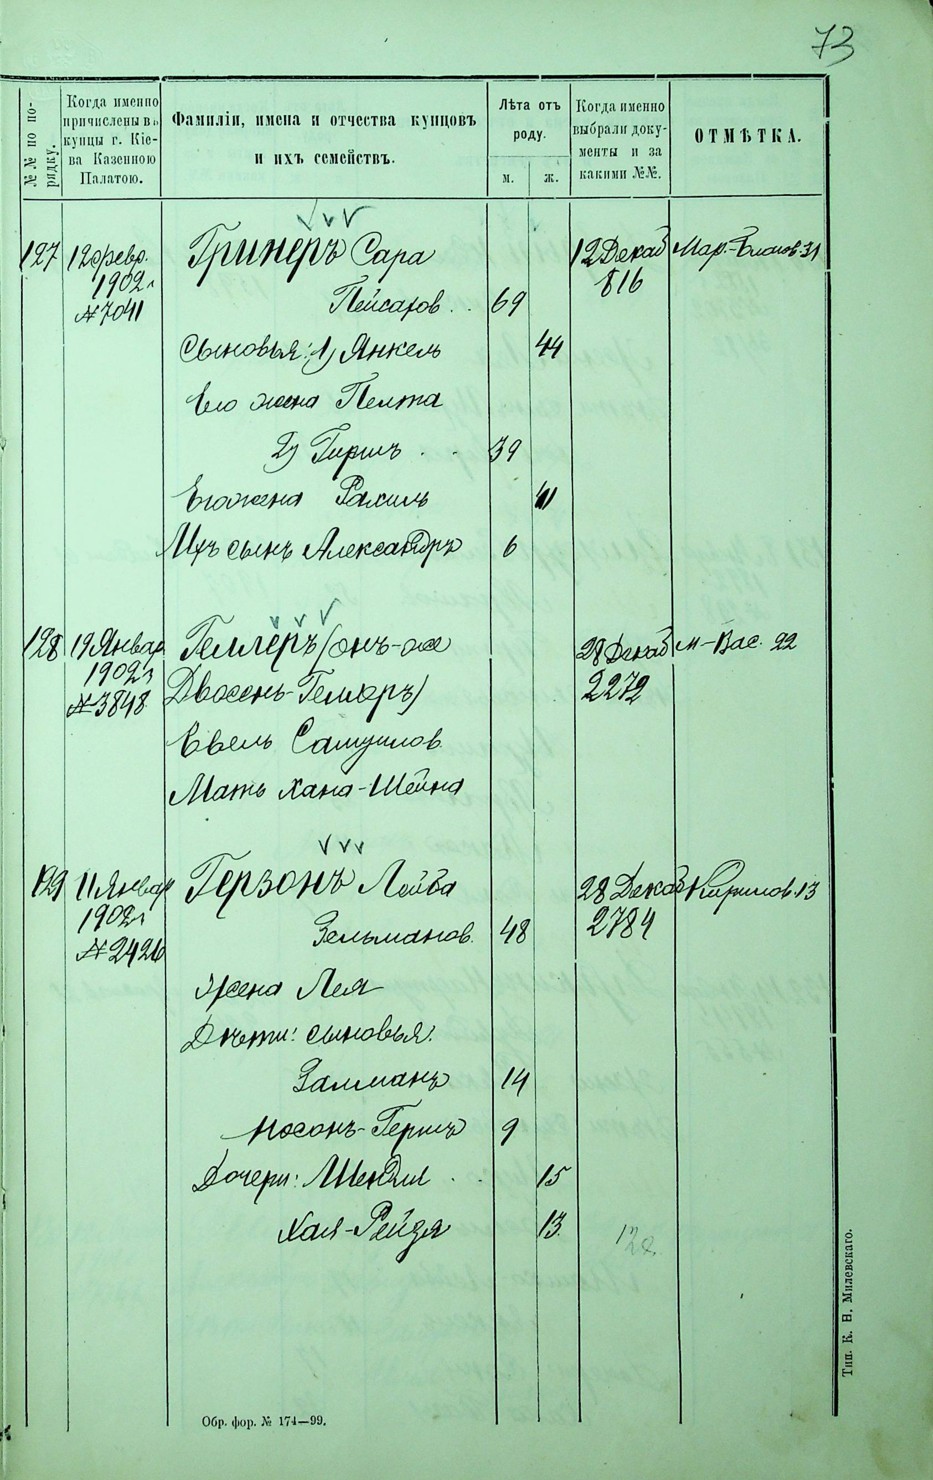 73
№№ по по-
рядку.
Когда именно
причислены въ
купцы г. Кіе-
ва Казенною
Палатою.
Фамиліи, имена и отчества купцовъ
и ихъ семействъ.
Лѣта отъ
роду.
м. ж.
Когда именно
выбрали доку-
менты и за
какими №№.
ОТМѢТКА.
127 12 февр. Гринеръ Сара 12 Декаб
1902 г 816
№ 7041 Пейсахов. . 69
Сыновья: 1) Янкель 44
Его жена
2) Гиршъ . . 39
Его жена Рахиль 41
Ихъ сынъ Александръ 6
128 19 Январ Геллеръ (онъ-же 28 Декаб М-Вас. 22
1902 г Двосенъ-Геллеръ) 2272
№ 3848
Евель Самуилов.
Мать Хана-Шейна
129 11 Январ Герзонъ Лейба 28 Декаб Кирилов. 13
1902 г 2784
№ 2426 Зельманов. 48
Жена Лея
Дѣти: сыновья:
Залманъ 14
Носонъ-Гершъ 9
Дочери: Шендля . . 15
Хая-Рейзя 13.
Обр. фор. № 174—99.
Тип. К. Н. Милевскаго.